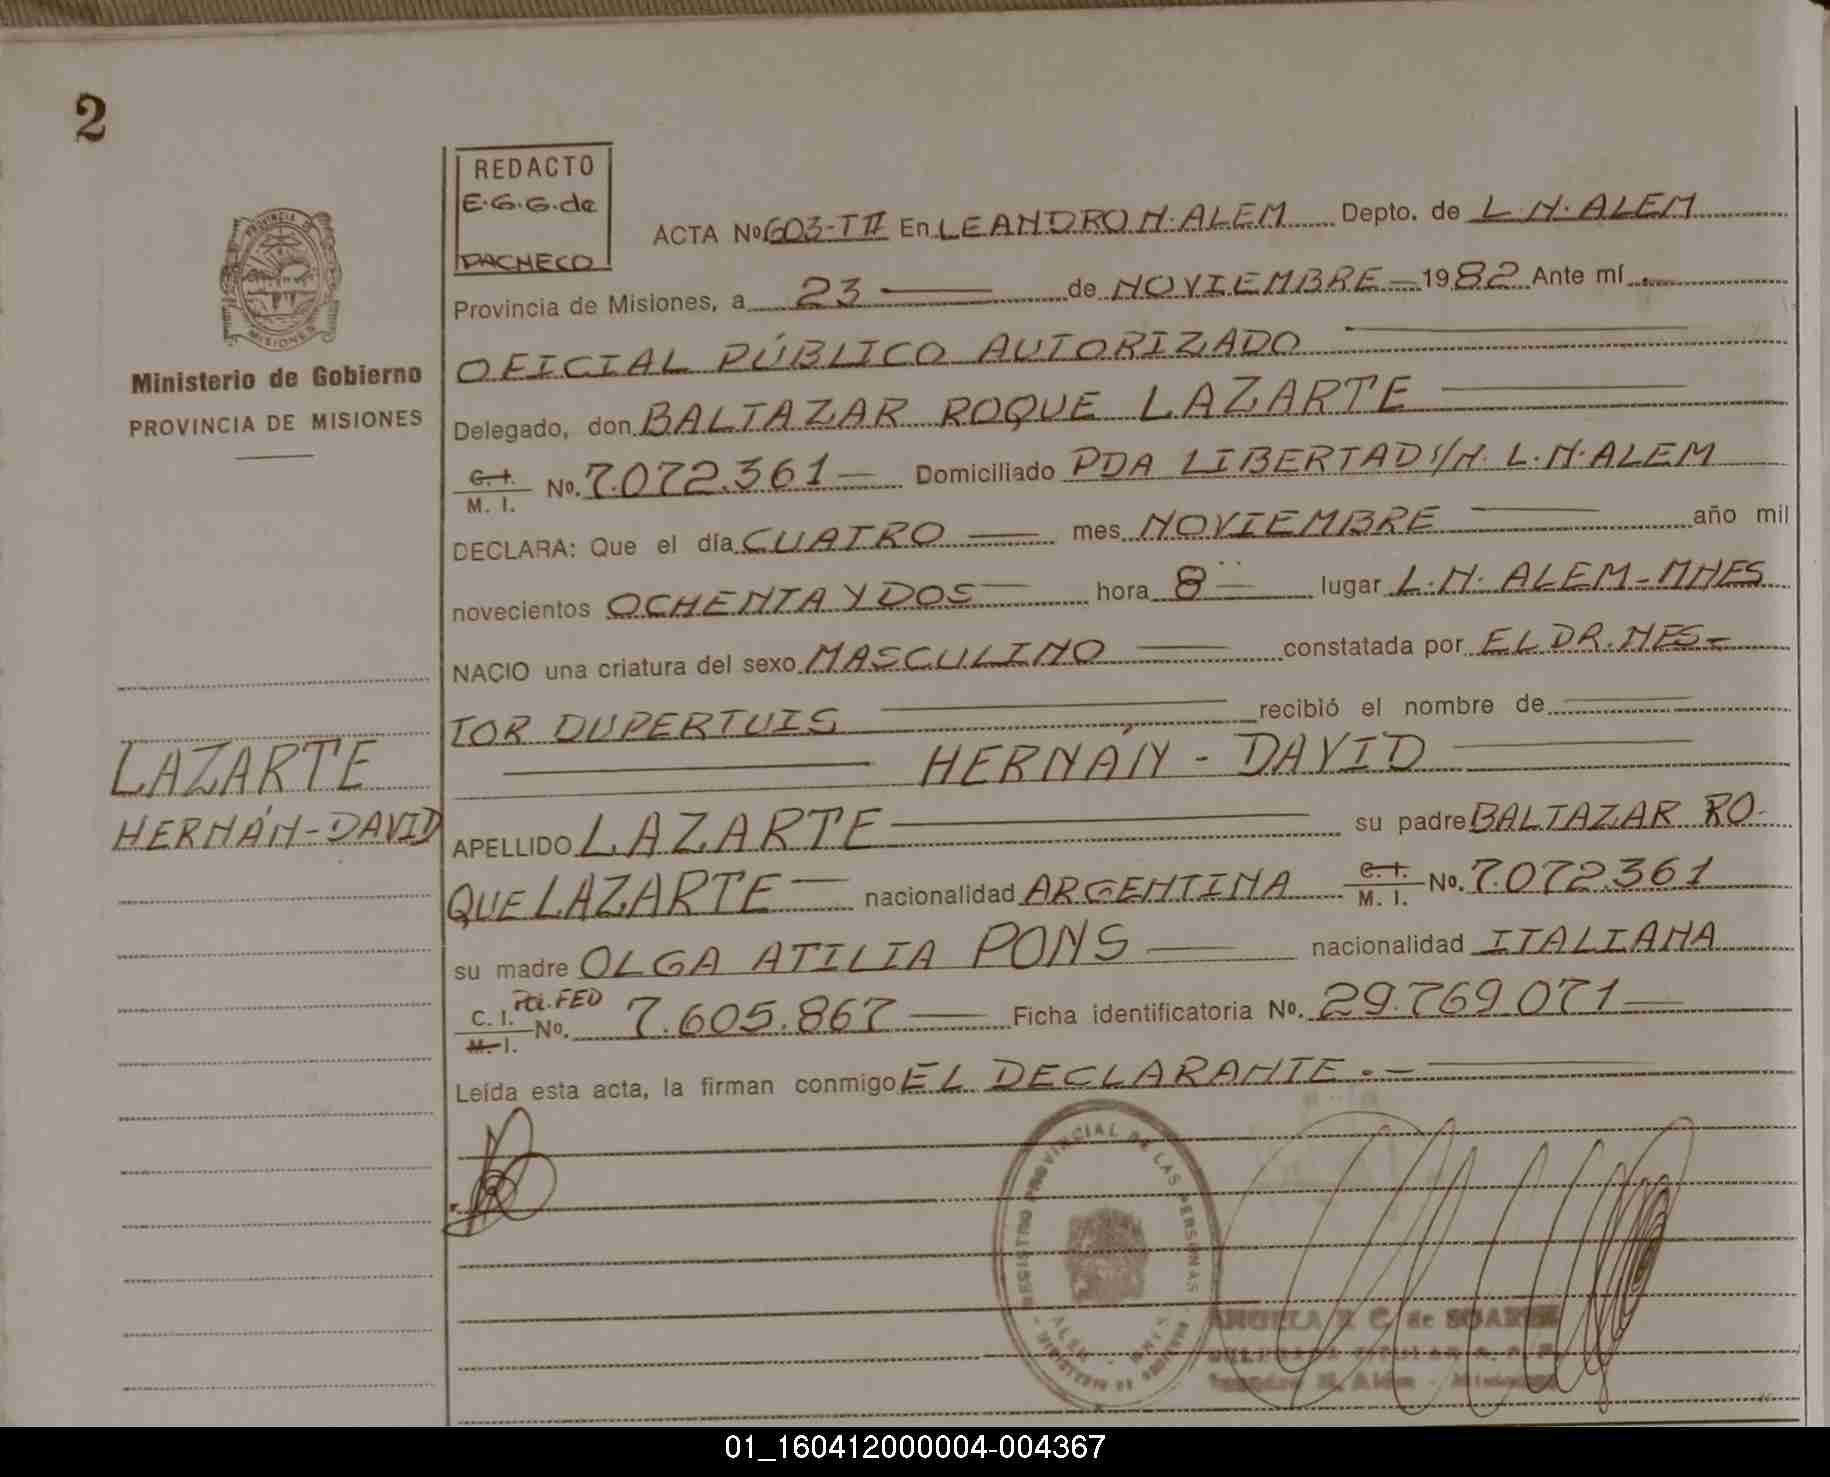 2
REDACTO
E.G.G. de
PACHECO
ACTA No 603-TII En LEANDRO N. ALEM Depto. de L. N. ALEM
Provincia de Misiones, a 23 de NOVIEMBRE 1982 Ante mí
OFICIAL PÚBLICO AUTORIZADO
Ministerio de Gobierno
PROVINCIA DE MISIONES
Delegado, don BALTAZAR ROQUE LAZARTE
C. I.
M. I. No. 7.072.361 Domiciliado PDA LIBERTAD S/N. L.N. ALEM
DECLARA: Que el día CUATRO mes NOVIEMBRE año mil
novecientos OCHENTA Y DOS hora 8 lugar L.N. ALEM-MNES
NACIO una criatura del sexo MASCULINO constatada por EL DR. NES-
TOR DUPERTUIS recibió el nombre de
HERNÁN - DAVID
LAZARTE
HERNÁN-DAVID
APELLIDO LAZARTE su padre BALTAZAR RO-
QUE LAZARTE nacionalidad ARGENTINA C. I.
M. I. No. 7.072.361
su madre OLGA ATILIA PONS nacionalidad ITALIANA
C. I. Pol. FED
M. I. No. 7.605.867 Ficha identificatoria No. 29.769.071
Leída esta acta, la firman conmigo EL DECLARANTE.-
REGISTRO PROVINCIAL DE LAS PERSONAS
ALEM - MNES
MINISTERIO DE GOBIERNO
PROVINCIA DE MISIONES
ANGELA R. C. de SOAREZ
Leandro N. Alem - Misiones
01_160412000004-004367